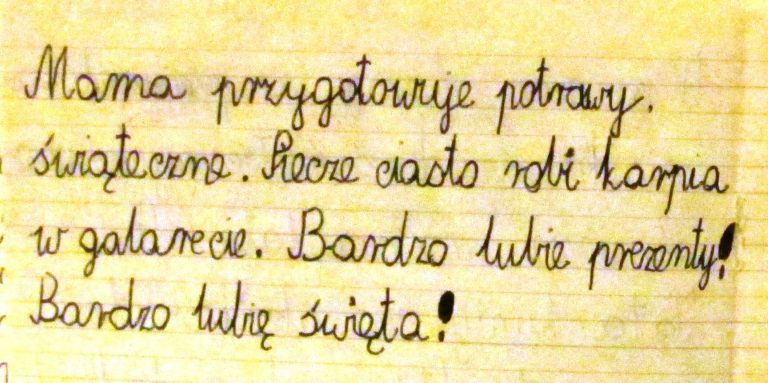 Mama przygotowuje potrawy.
świąteczne. Piecze ciasto robi karpia
w galarecie. Bardzo lubie prezenty!
Bardzo lubię święta!